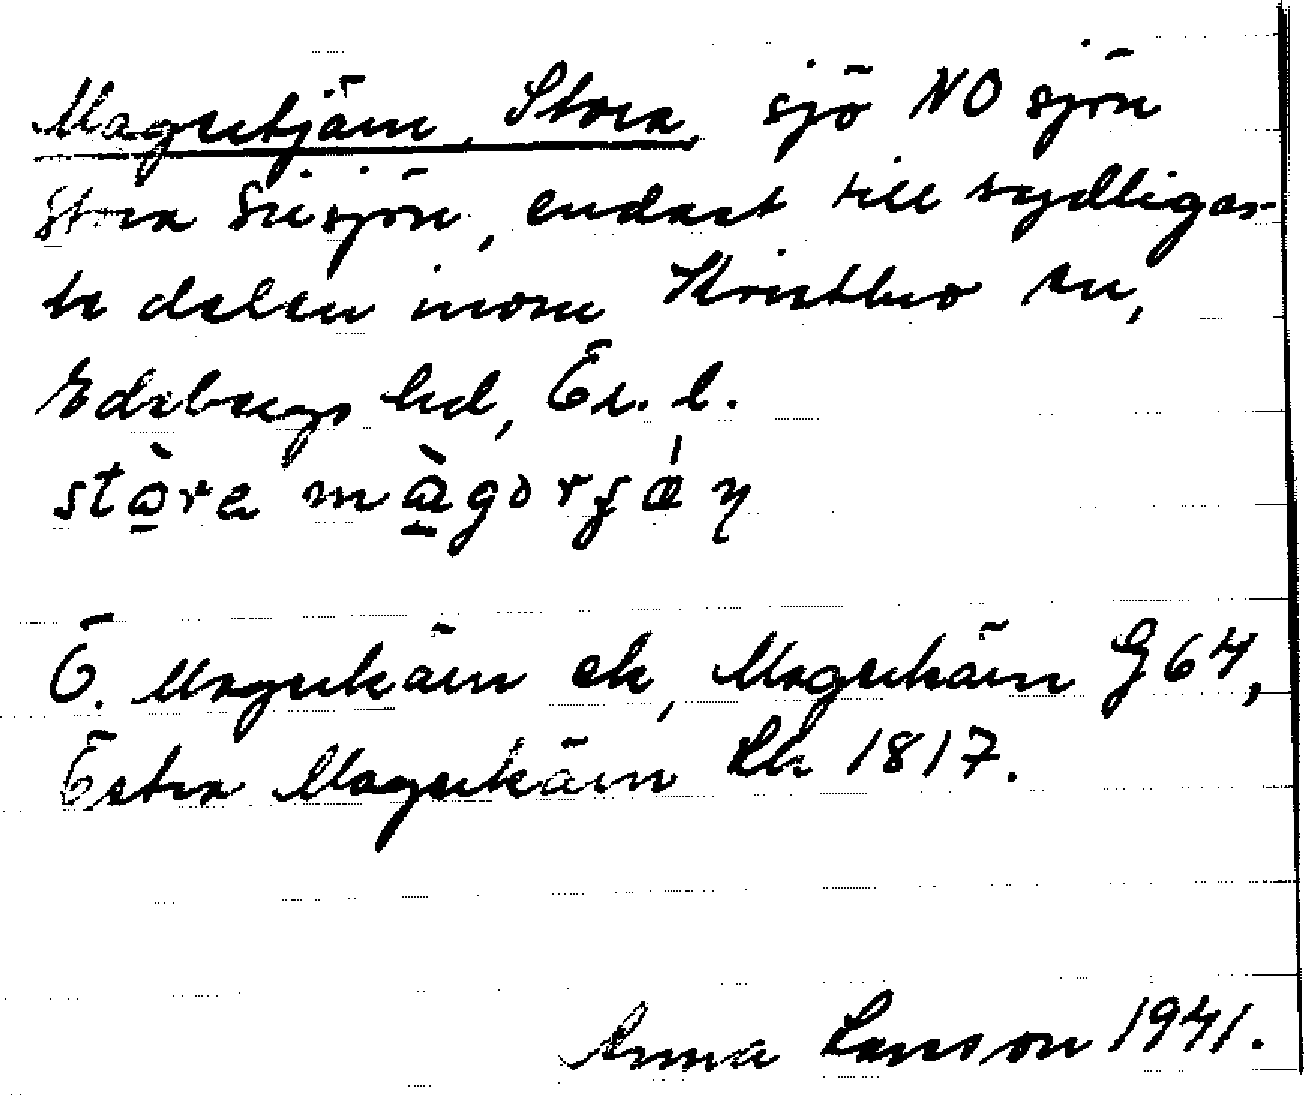 Magrutjärn, Stora, sjö NO sjön
Stora sjön, endast till sydligas-
te delen inom Kristbro sn,
Edsbergs hd, Ör. l.
stòra màgorʃǽɳ
Ö. Magrukärn ek, Magrukärn G 64,
Östra Magrukärn Rk 1817.
Anna Larsson 1941.